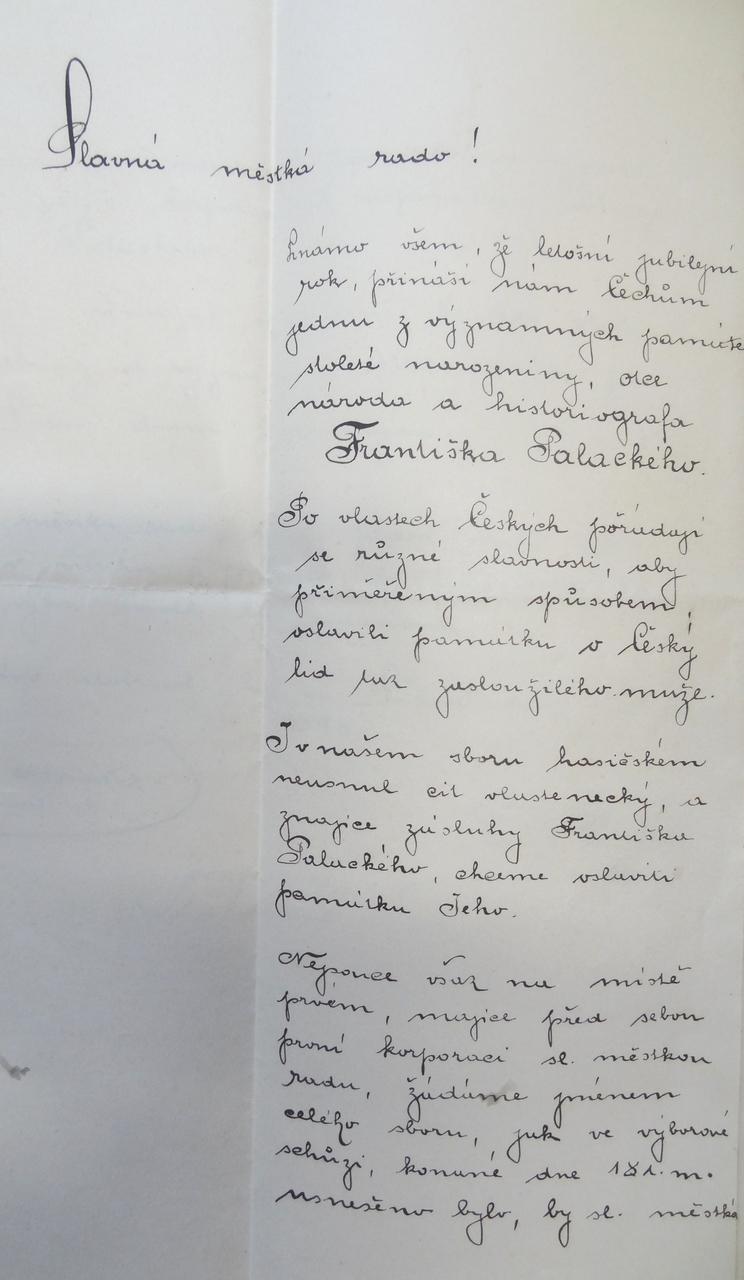 Slavná městká rado!
Známo všem, že letošní jubilejní
rok, přináší nám Čechům
jednu z významných památek
stoleté narozeniny, otce
národa a historiografa
Františka Palackého.
Po vlastech Českých pořádají
se různé slavnosti, aby
přiměřeným spůsobem,
oslavili památku o Český
lid tak zasloužilého muže.
I v našem sboru hasičském
neusnul cit vlastenecký, a
znajíce zásluhy Františka
Palackého, chceme oslaviti
památku Jeho.
Nejsouce však na místě
prvém, majíce před sebou
první korporaci sl. městkou
radu, žádáme jménem
celého sboru, jak ve výborové
schůzi, konané dne t. m.
usneseno bylo, by sl. městká